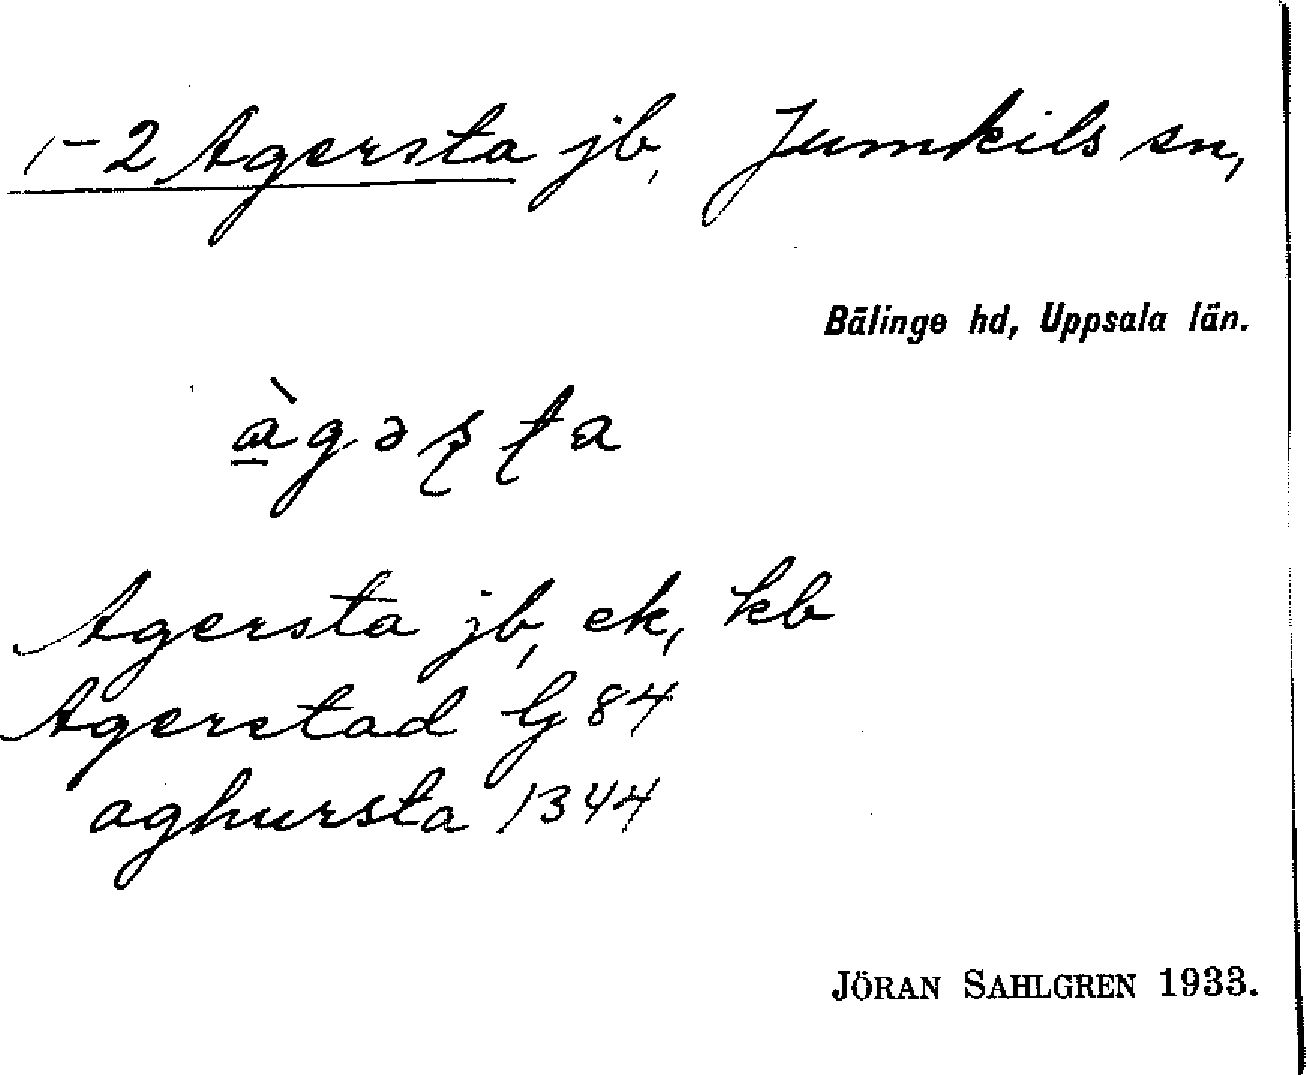 1-2 Agersta jb, Jumkils sn,
Bälinge hd, Uppsala län.
à̱gəʂʈa
Agersta jb, ek, kb
Agerstad G 84
aghursta 1344
JÖRAN SAHLGREN 1933.